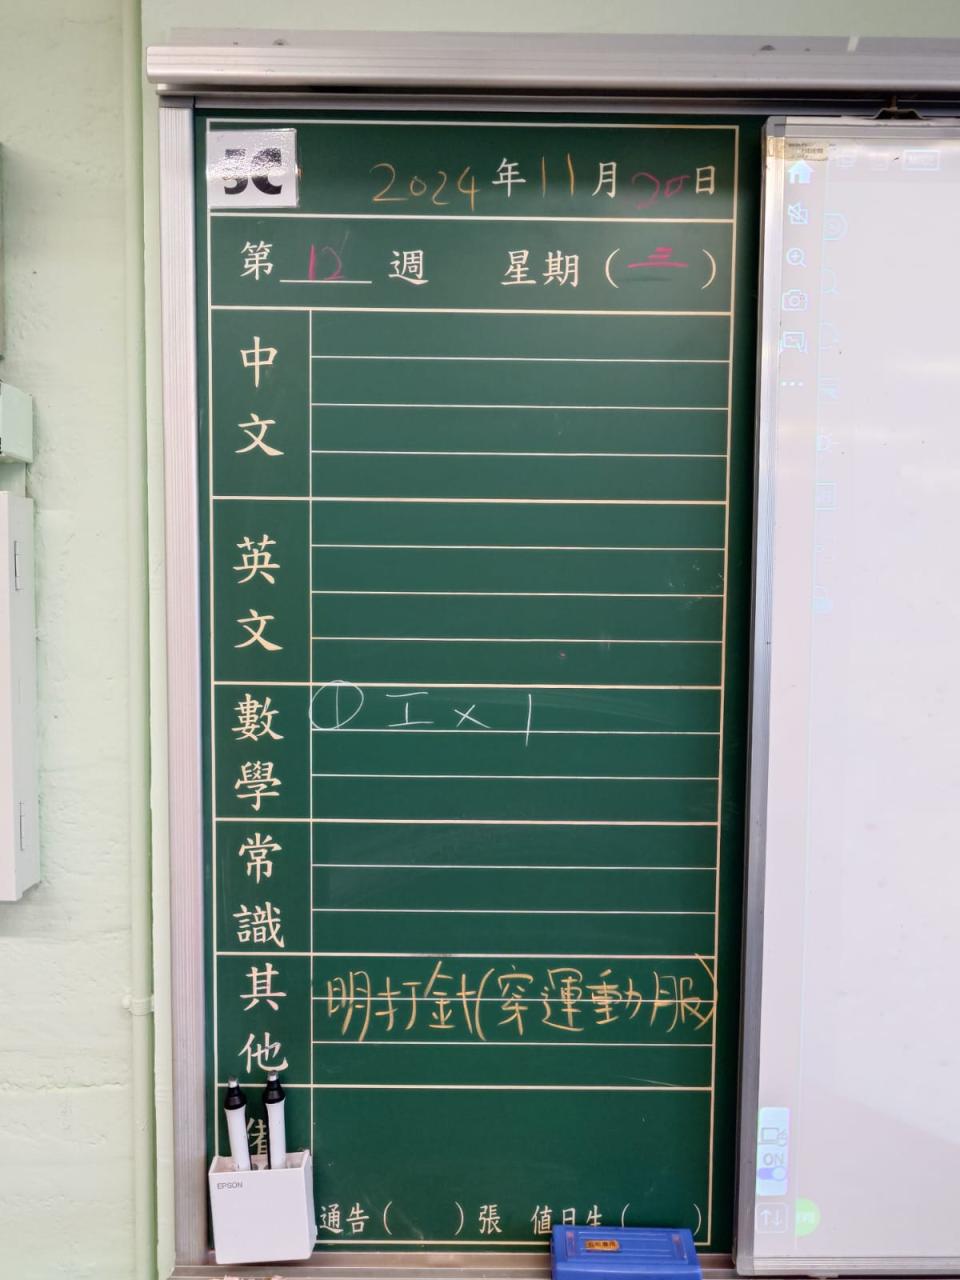 5C
2024年11月20日
第12週 星期(三)
中文
英文
數學 ① 工 x 1
常識
其他 明打針(穿運動服)
EPSON
通告( )張 值日生( )
ON